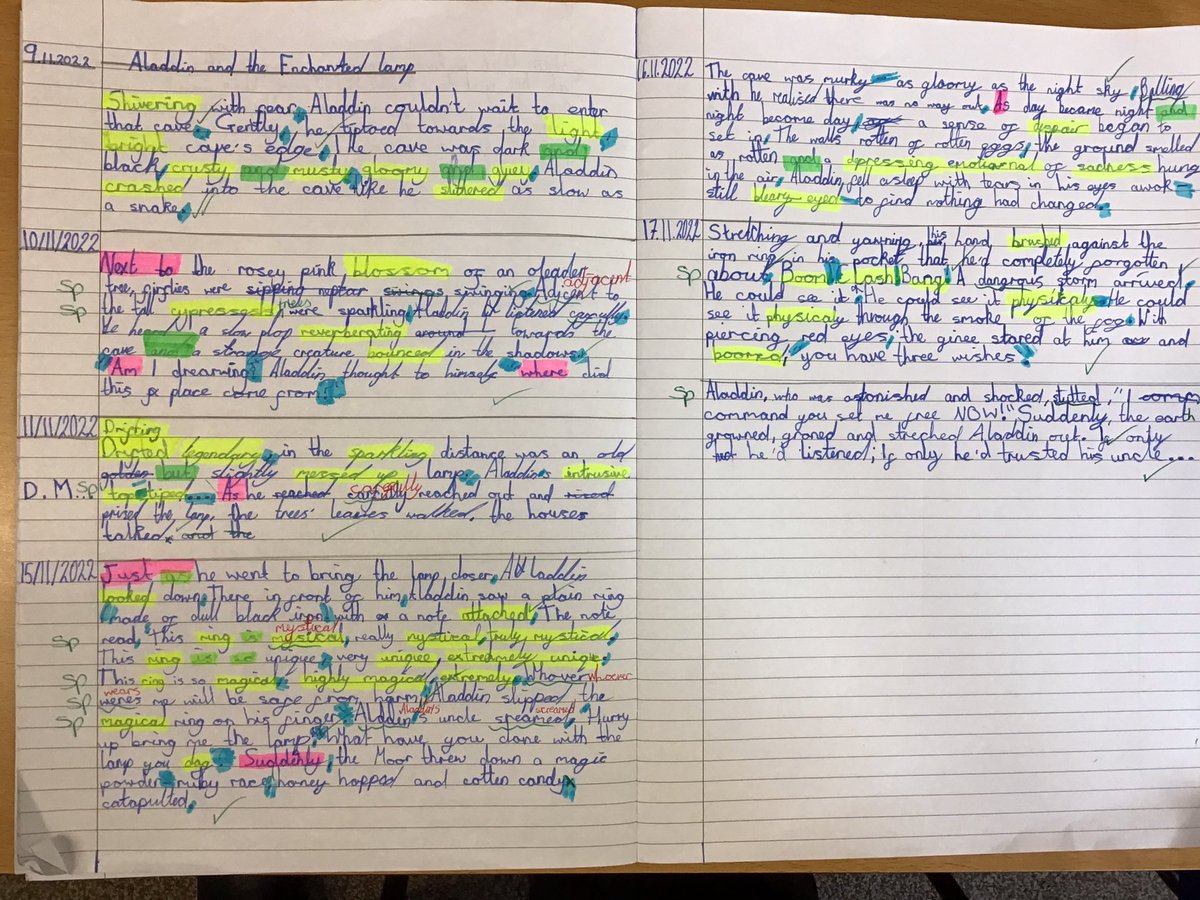 9.11.2022
Aladdin and the Enchanted lamp
Shivering with fear, Aladdin couldn't wait to enter
that cave. Gently, he tiptoed towards the light,
bright cave's edge. The cave was dark and
black, crusty and musty, gloomy and Aladdin
crashed into the cave like he slithered as slow as
a snake.
10/11/2022
Next to the rosey pink blossom of an oleader
adjacent
Sp tree, girglies were sipping neptar swinging Adjcent to
trees
Sp the tall cypresses, were sparkling. Aladdin listened
He a slow plop reverberating around towards the
cave and a strange creature bounced in the shadows.
"Am I dreaming" Aladdin thought to himself "where did
this place come from?"
11/11/2022
Drifting
Drifted legendary, in the sparkling distance was an old
golden but slightly messed up lamp. Aladdin's intrusive
carefully
D.M. Sp As he reached reached out and
prized the lamp, the trees' leaves walked, the houses
talked. and the
15/11/2022
Just as he went to bring the lamp closer, Aladdin
looked down. There in front of him, Aladdin saw a plain ring
(made of dull black iron) with a note attached. The note
mystical
Sp read, This ring is mystical, really mystical, truly mystical,
This ring is so uniqee, very uniqee, extreamely uniqe,
Whoever
Sp This ring is so magical, highly magical, extremely. Whover
wears
Sp weres me will be safe from harm. Aladdin slipped the
Aladdin's screamed
Sp magical ring on his finger. Aladdin's uncle screamed, Hurry
up bring me the lamp, What have you done with the
lamp you dog. Suddenly, the Moor threw down a magic
powder ruby race honey hopped and cotten candy
catapulted.
16.11.2022
The cave was murky as gloomy as the night sky. Billing
with he realised there was no way out. As day became night and
night become day, a sense of despair began to
set in. The walls rotten of rotten eggs, the ground smelled
as rotten and a dpressing emotional of sadness hung
in the air, Aladdin, fell asleep with tears in his eyes awok
still bleary eyed to find nothing had changed.
17.11.2022
Stretching and yawning, his hand brushed against the
iron ring in his pocket that he'd completely forgotten
Sp about. Boom! Lash! Bang! A dangerous storm arrived!
He could see it. He could see it physicaly. He could
see it physicaly through the smoke of the fog. With
piercing, red eyes, the ginee stared at him and
boomed, you have three wishes.
Sp Aladdin, who was astonished and shocked, stutted, "I
command you set me free NOW!" Suddenly, the earth
growned, groned and streched Aladdin out. If only
he'd listened; If only he'd trusted his uncle...